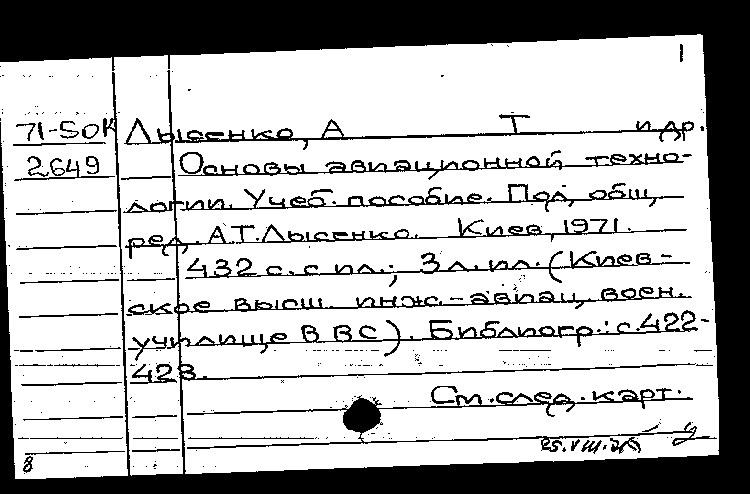 1
71-50К Лысенко, А Т и др.
2649 Основы авиационной техно-
логии. Учеб. пособие. Под общ.
ред. А.Т. Лысенко. Киев, 1971.
432 с. с ил.; 3 л. ил. (Киев-
ское высш. инж.-авиац. воен.
училище ВВС). Библиогр.: с. 422-
428.
См. след. карт.
8